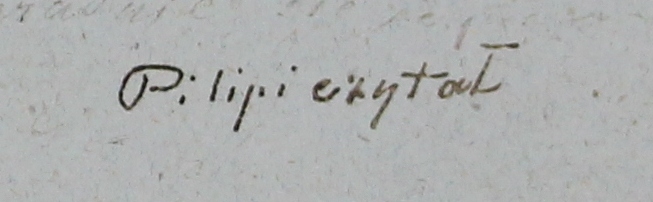 Pilipi czytał